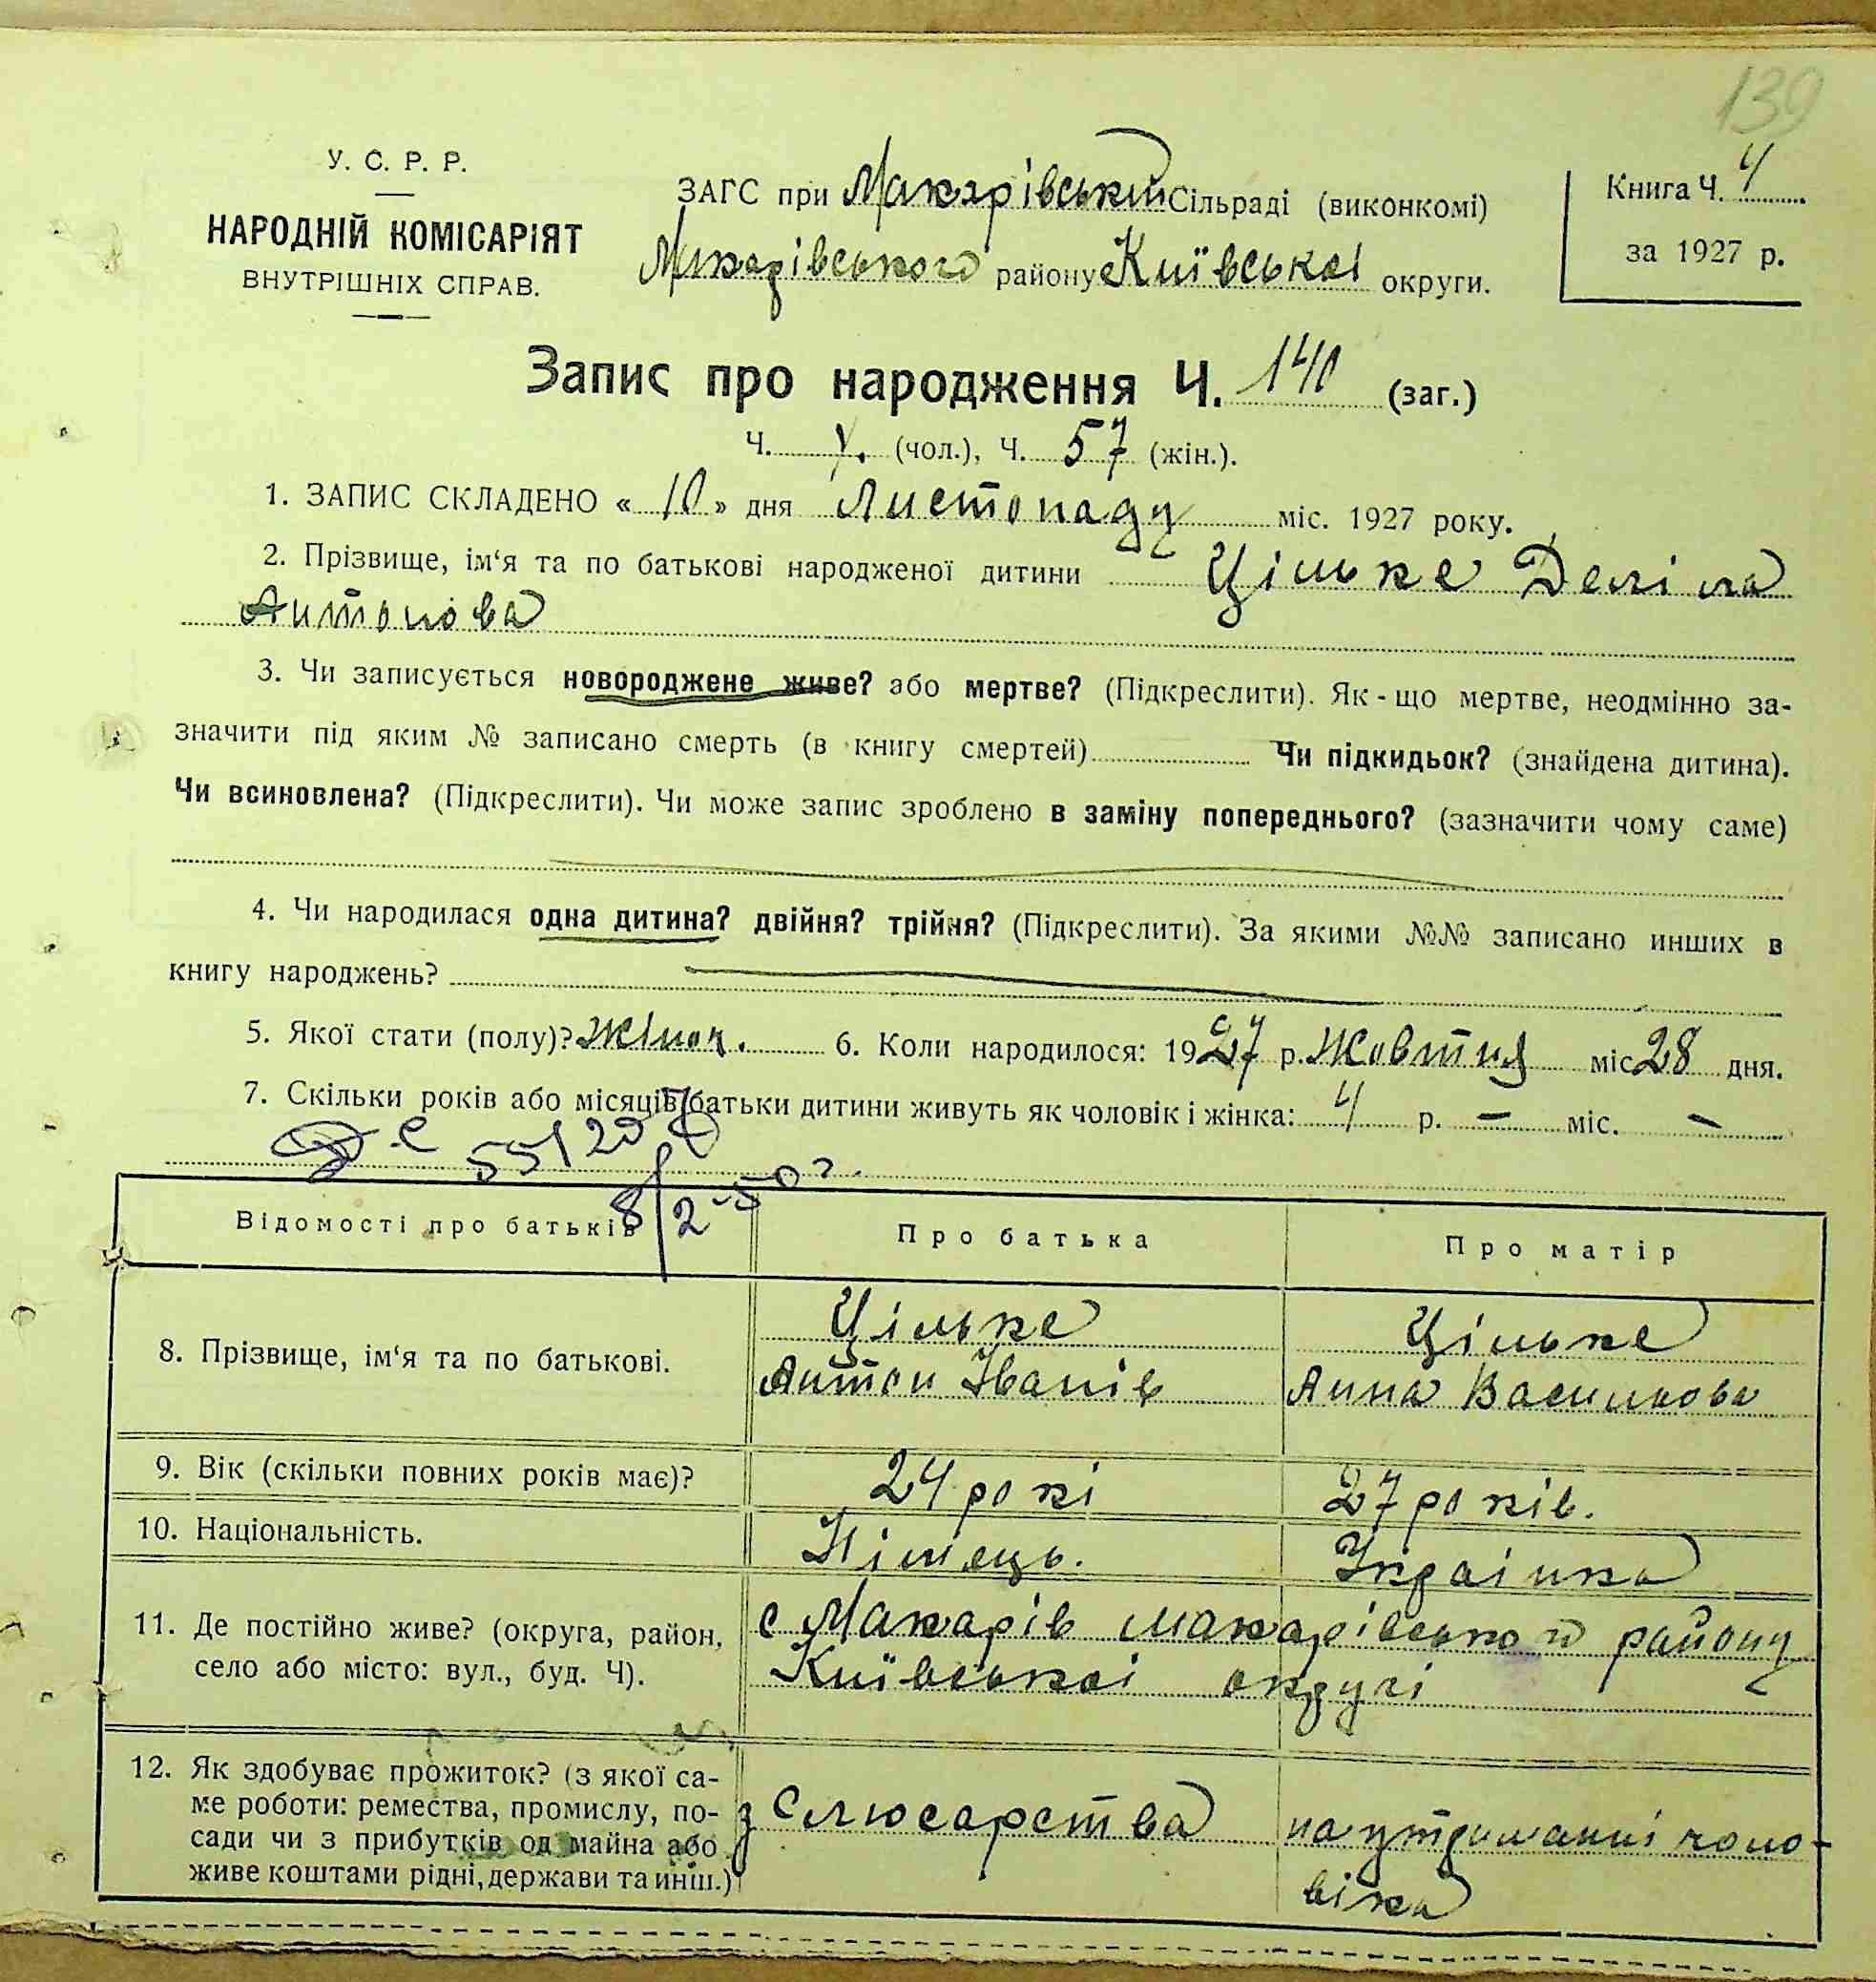 139
У. С. Р. Р.
НАРОДНІЙ КОМІСАРІЯТ
ВНУТРІШНІХ СПРАВ.
ЗАГС при Макарівській Сільраді (виконкомі)
Макарівського району Київської округи.
Книга Ч. 4
за 1927 р.
Запис про народження Ч. 140 (заг.)
Ч. (чол.), Ч. 57 (жін.).
1. ЗАПИС СКЛАДЕНО « 10 » дня Листопаду міс. 1927 року.
2. Прізвище, ім‘я та по батькові народженої дитини Цільке Деліла
Антонова
3. Чи записується новороджене живе? або мертве? (Підкреслити). Як - що мертве, неодмінно за-
значити під яким № записано смерть (в книгу смертей) Чи підкидьок? (знайдена дитина).
Чи всиновлена? (Підкреслити). Чи може запис зроблено в заміну попереднього? (зазначити чому саме)
4. Чи народилася одна дитина? двійня? трійня? (Підкреслити). За якими №№ записано инших в
книгу народжень?
5. Якої стати (полу)? Жіноч. 6. Коли народилося: 1927 р. Жовтня міс 28 дня.
7. Скільки років або місяців батьки дитини живуть як чоловік і жінка: 4 р. — міс. —
8/2-50 г.
Відомості про батьків
Про батька
Про матір
8. Прізвище, ім‘я та по батькові.
Цільке
Антон Іванів
Цільке
Анна Василова
9. Вік (скільки повних років має)?
24 рокі
27 років.
10. Національність.
Німець.
Українка
11. Де постійно живе? (округа, район,
село або місто: вул., буд. Ч).
с Макарів макарівського району
Київської округі
12. Як здобуває прожиток? (з якої са-
ме роботи: ремества, промислу, по-
сади чи з прибутків од майна або
живе коштами рідні, держави та инш.)
з Слюсарства
на утриманні чоло-
віка